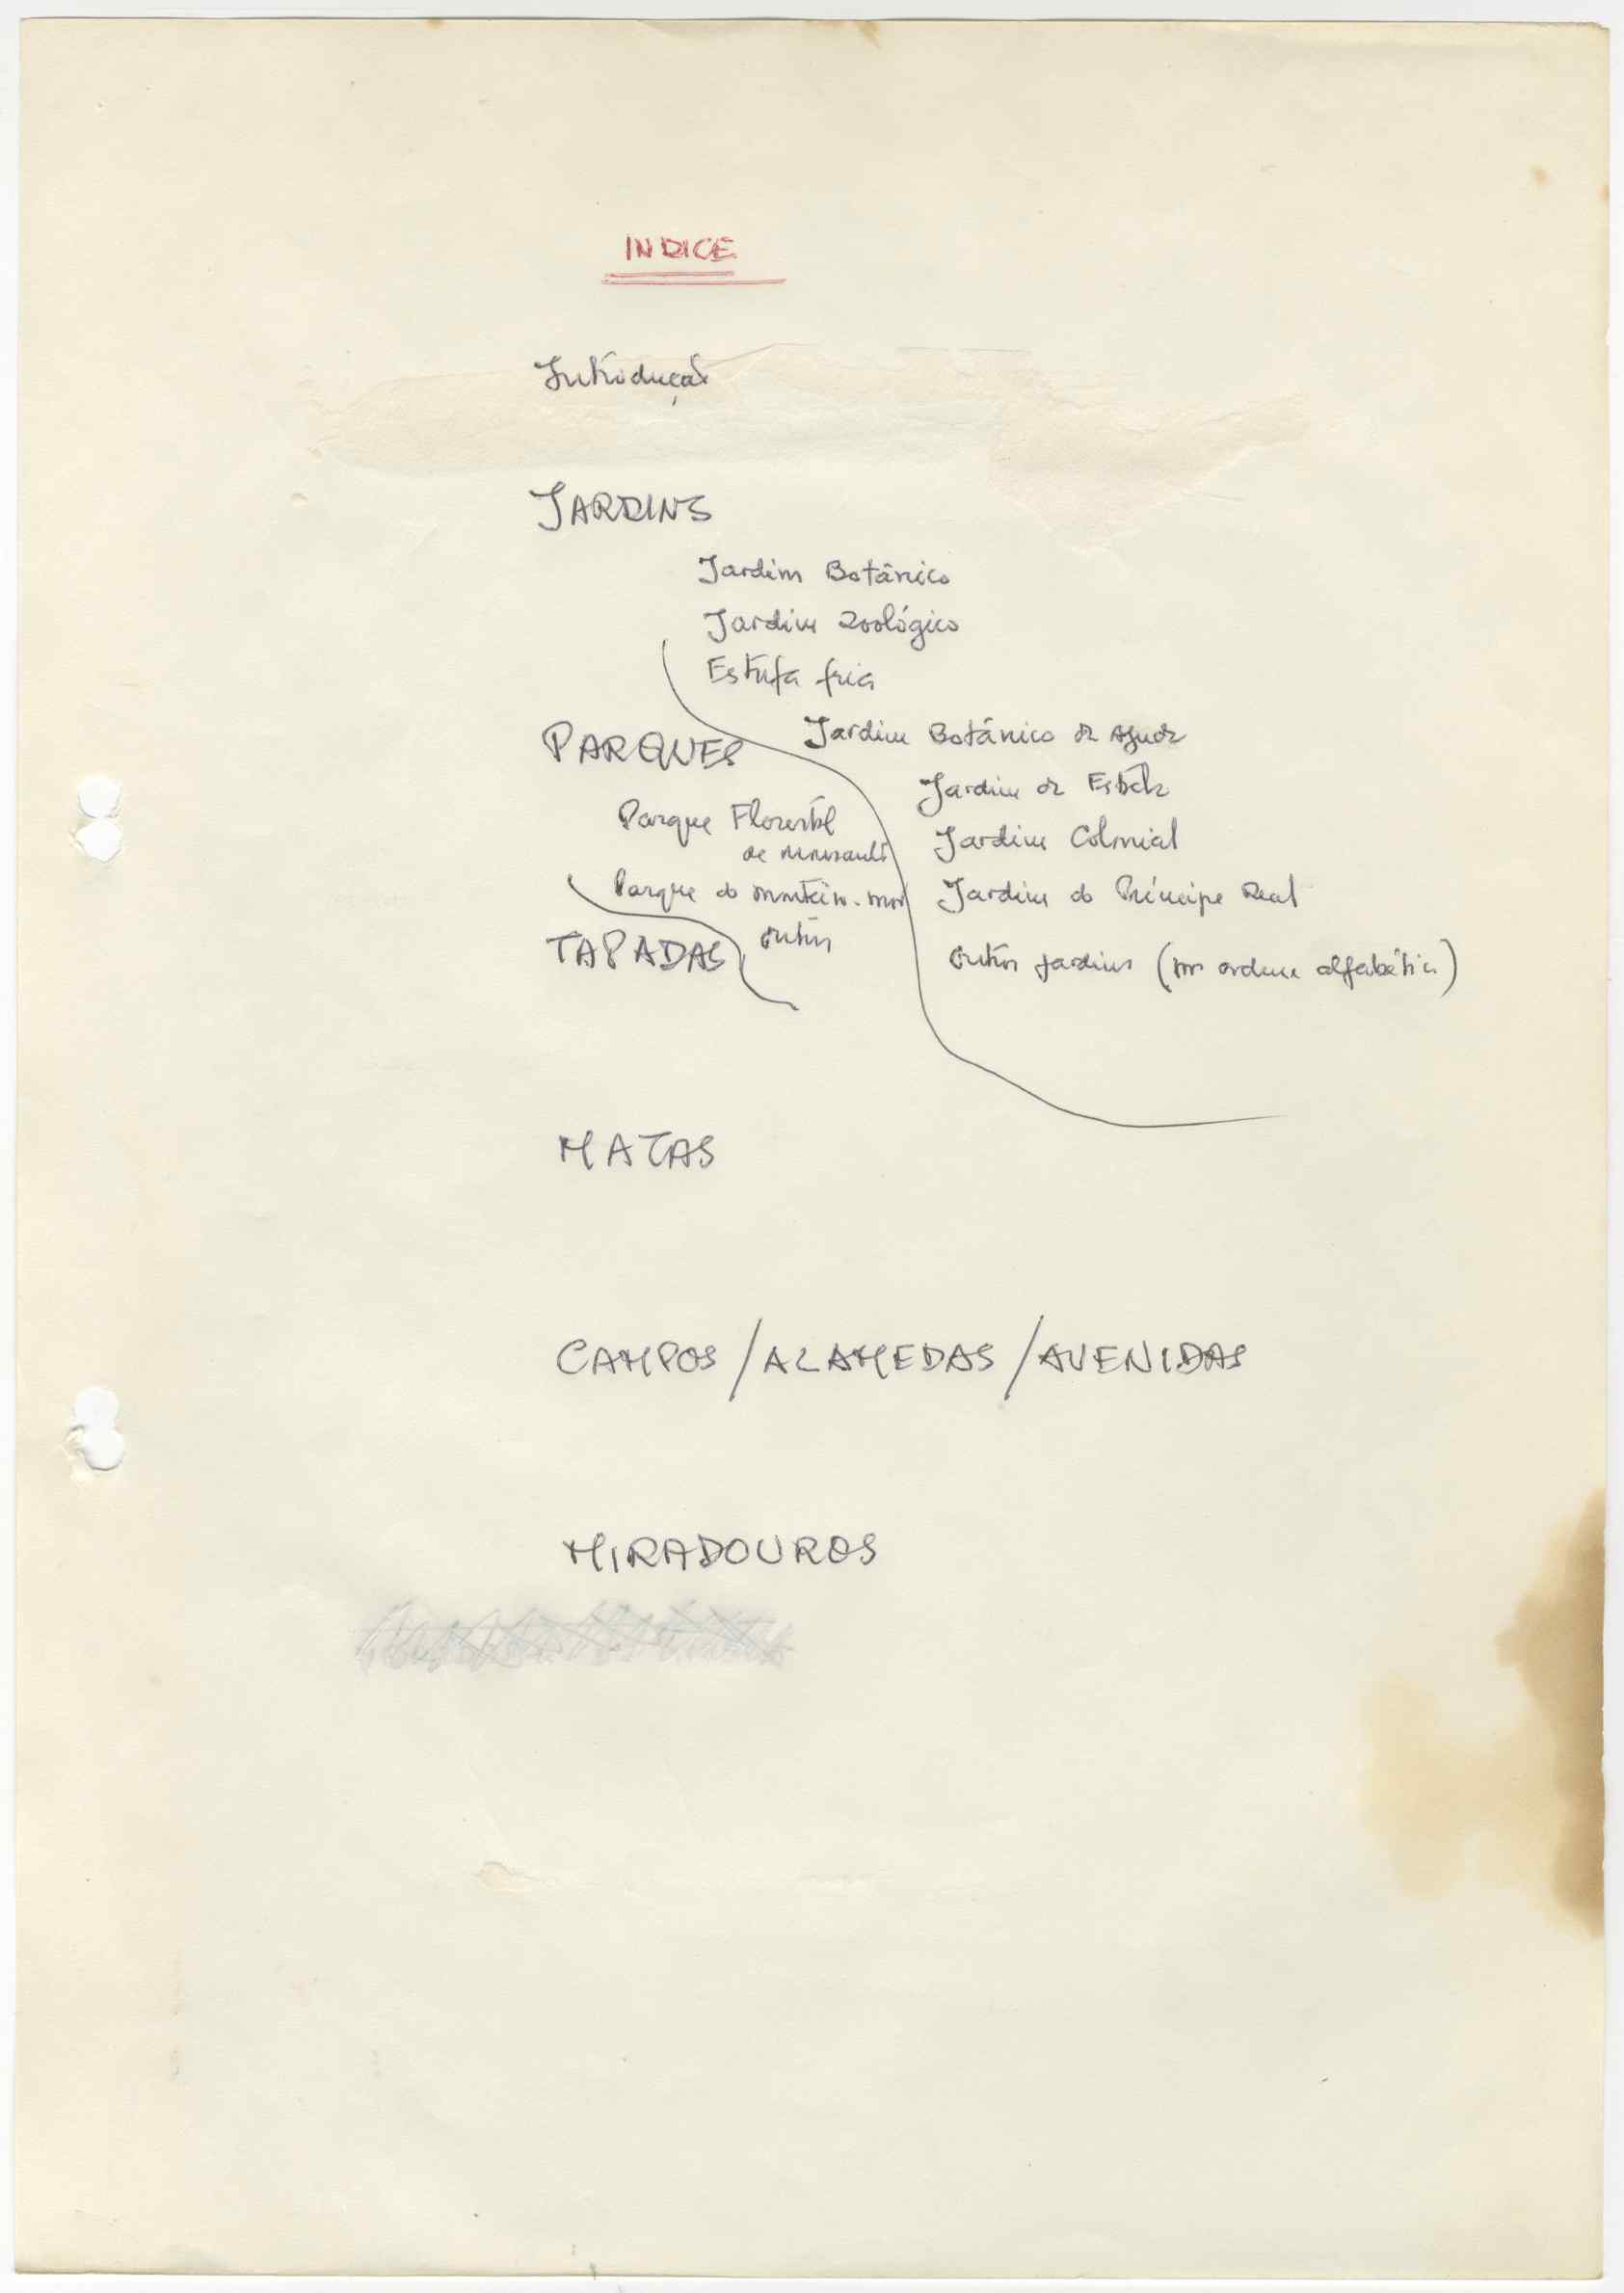 INDICE
Introdução
JARDINS
Jardim Botânico
Jardim Zoológico
Estufa fria
Jardim Botânico da Ajuda
Jardim da Estrela
Jardim Colonial
Jardim do Príncipe Real
Outros jardins (por ordem alfabética)
PARQUES
Parque Florestal
de Monsanto
Parque do Monteiro-mor
Outros
TAPADAS
MATAS
CAMPOS / ALAMEDAS / AVENIDAS
MIRADOUROS